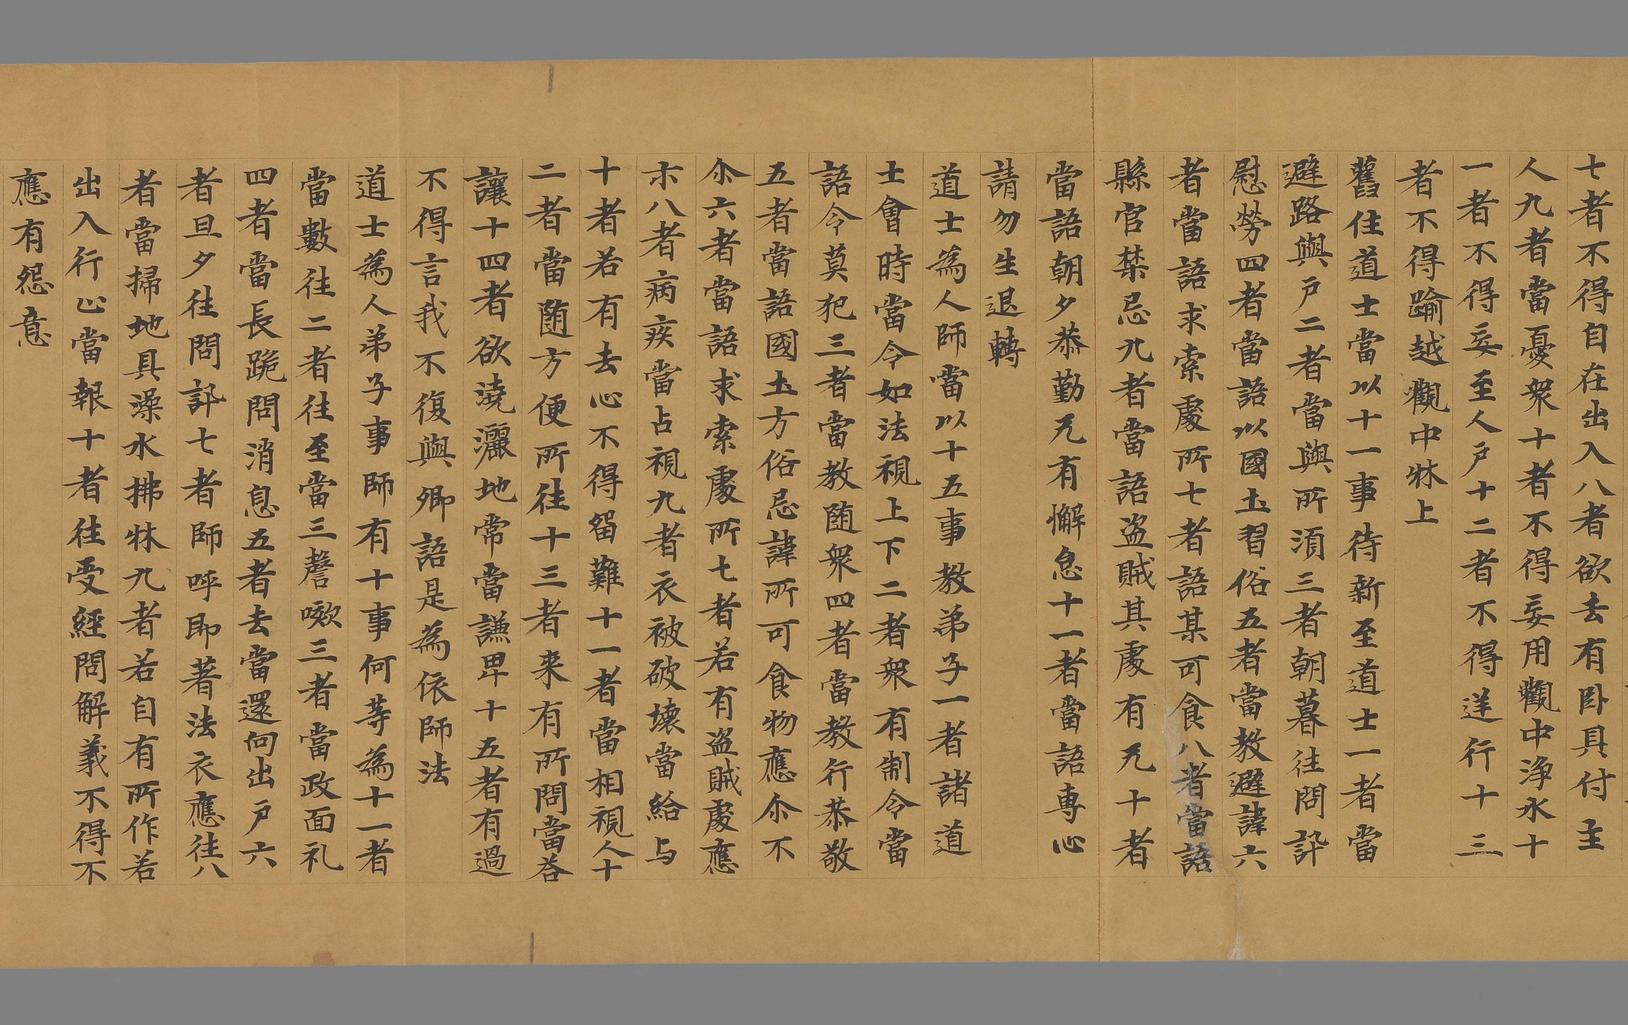 七者不得自在出入八者欲去有卧具付主
人九者當憂衆十者不得妄用觀中淨水十
一者不得妄至人户十二者不得逆行十三
者不得踰越觀中牀上
舊住道士當以十一事待新至道士一者當
避路與户二者當與所湏三者朝暮往問訊
慰勞四者當語以國土習俗五者當教避諱六
者當語求索處所七者語某可食八者當語
縣官禁忌九者當語盗賊某處有无十者
當語朝夕恭勤无有懈怠十一者當語専心
請勿生退轉
道士為人師當以十五事教弟子一者諸道
士會時當令如法視上下二者衆有制令當
語令莫犯三者當教随衆四者當教行恭敬
五者當語國土方俗忌諱所可食物應尒不
尒六者當語求索處所七者若有盗賊處應
示八者病疾當占視九者衣被破壊當給与
十者若有去心不得留難十一者當相視人十
二者當随方便所往十三者来有所問當荅
讓十四者欲澆灑地常當謙卑十五者有過
不得言我不復與卿語是為依師法
道士為人弟子事師有十事何等為十一者
當數往二者往至當三謦嗽三者當政面礼
四者當長跪問消息五者去當還向出户六
者旦夕往問訊七者師呼即著法衣應往八
者當掃地具澡水拂牀九者若自有所作若
出入行止當報十者往受經問解義不得不
應有怨意